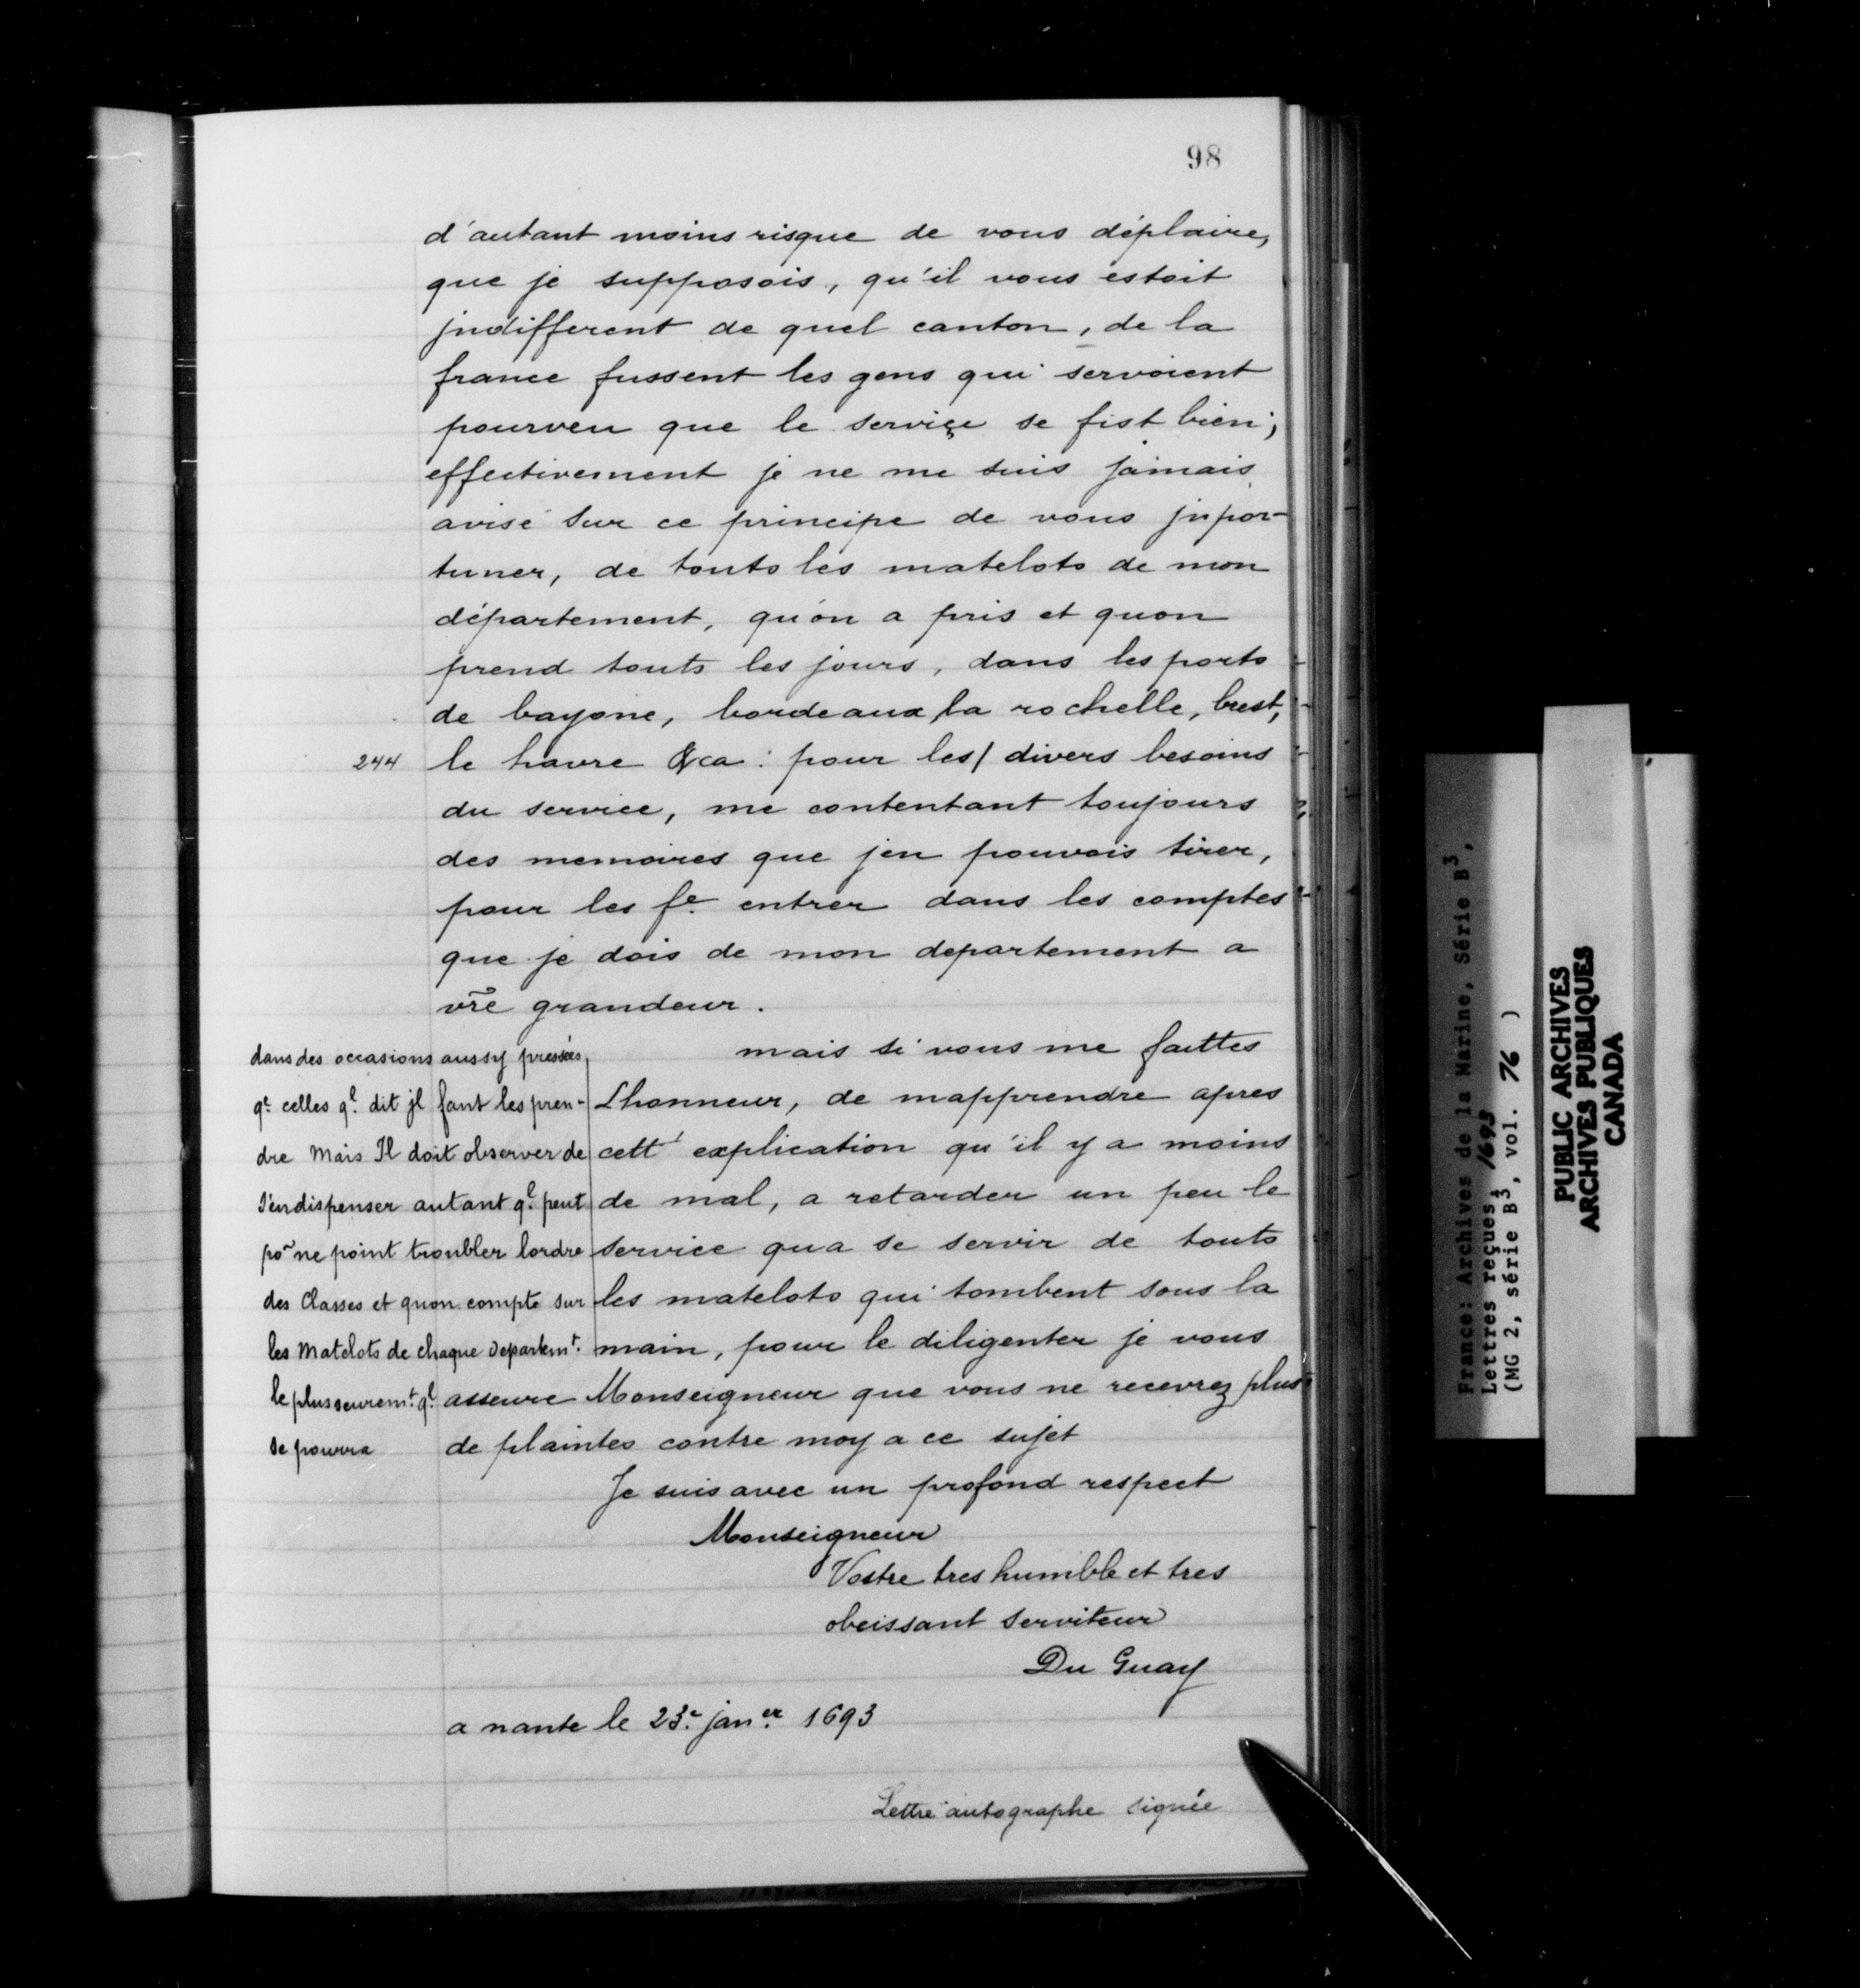 98
d'autant moins risque de vous déplaire,
que je supposois, qu'il vous estoit
jndifferent de quel canton, de la
france fussent les gens qui servoient
pourveu que le serviçe se fist bien;
effectivement je ne me suis jamais
avisé sur ce principe de vous jnpor-
tuner, de touts les matelots de mon
département, qu'on a pris et quon
prend touts les jours, dans les ports
de bayone, bordeaux, la rochelle, brest,
244 le havre &ca : pour les/ divers besoins
du service, me contentant toujours
des memoires que jen pouvois tirer,
pour les fe. entrer dans les comptes
que je dois de mon departement a
vr̃e grandeur.
mais si vous me faittes
Lhonneur, de mapprendre apres
cett' explication qu'il y a moins
de mal, a retarder un peu le
service qua se servir de touts
les matelots qui tombent sous la
main, pour le diligenter je vous
asseure Monseigneur que vous ne recevrez plus
de plaintes contre moy a ce sujet
dans des occasions aussy pressées,
qe. celles ql. dit jl faut les pren-
dre Mais Il doit observer de
s'endispenser autant ql. peut
po~ ne point troubler lordre
des Classes et quon compte sur
les Matelots de chaque departemt.
le plus seuremt. ql.
se pourra
Je suis avec un profond respect
Monseigneur
Vostre tres humble et tres
obeissant serviteur
Du Guay
a nante le 23e. janer. 1693
Lettre autographe signée
France: Archives de la Marine, Série B3,
Lettres reçues, 1693
(MG 2, série B3, vol. 76 )
PUBLIC ARCHIVES
ARCHIVES PUBLIQUES
CANADA